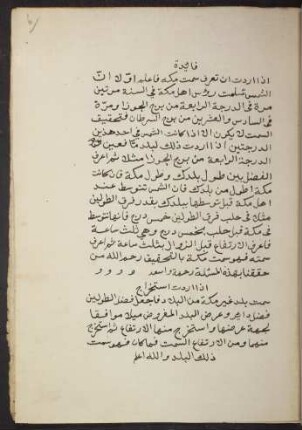 فائدة
اذا اردت ان تعرف سمت مكة فاعلم اولا ان
الشمس تسامت رؤس اهل مكة في السنة مرتين
مرة في الدرجة الرابعة من برج الجوزا ومرة
في السادس والعشرين من برج السرطان فتحقيق
السمت لا يكون الا اذا كانت الشمس في احد هذين
الدرجتين اذا اردت ذلك لبلد ما فعين
الدرجة الرابعة من برج الجوزا مثلا ثم اعرف
الفضل بين طول بلدك وطول مكة فان كانت
مكة اطول من بلدك فان الشمس تتوسط عند
اهل مكة قبل توسطها ببلدك بقدر فرق الطولين
مثلا في حلب فرق الطولين خمس درج فانها تتوسط
في مكة قبل حلب بخمس درج وهي ثلث ساعة
فاعرف الارتفاع قبل الزوال بثلث ساعة ثم اعرف
سمته فهو سمت مكة بالتحقيق رحم الله من
حققنا بهذه المسئلة رحمة واسعة
اذا اردت استخراج
سمت بلد غير مكة من البلاد فاجعل فضل الطولين
فضل داير وعرض البلد المفروض ميلا موافقا
لجهة عرضها واستخرج منها الارتفاع ثم استخرج
منهما ومن الارتفاع السمت فما كان فهو سمت
ذلك البلد والله اعلم